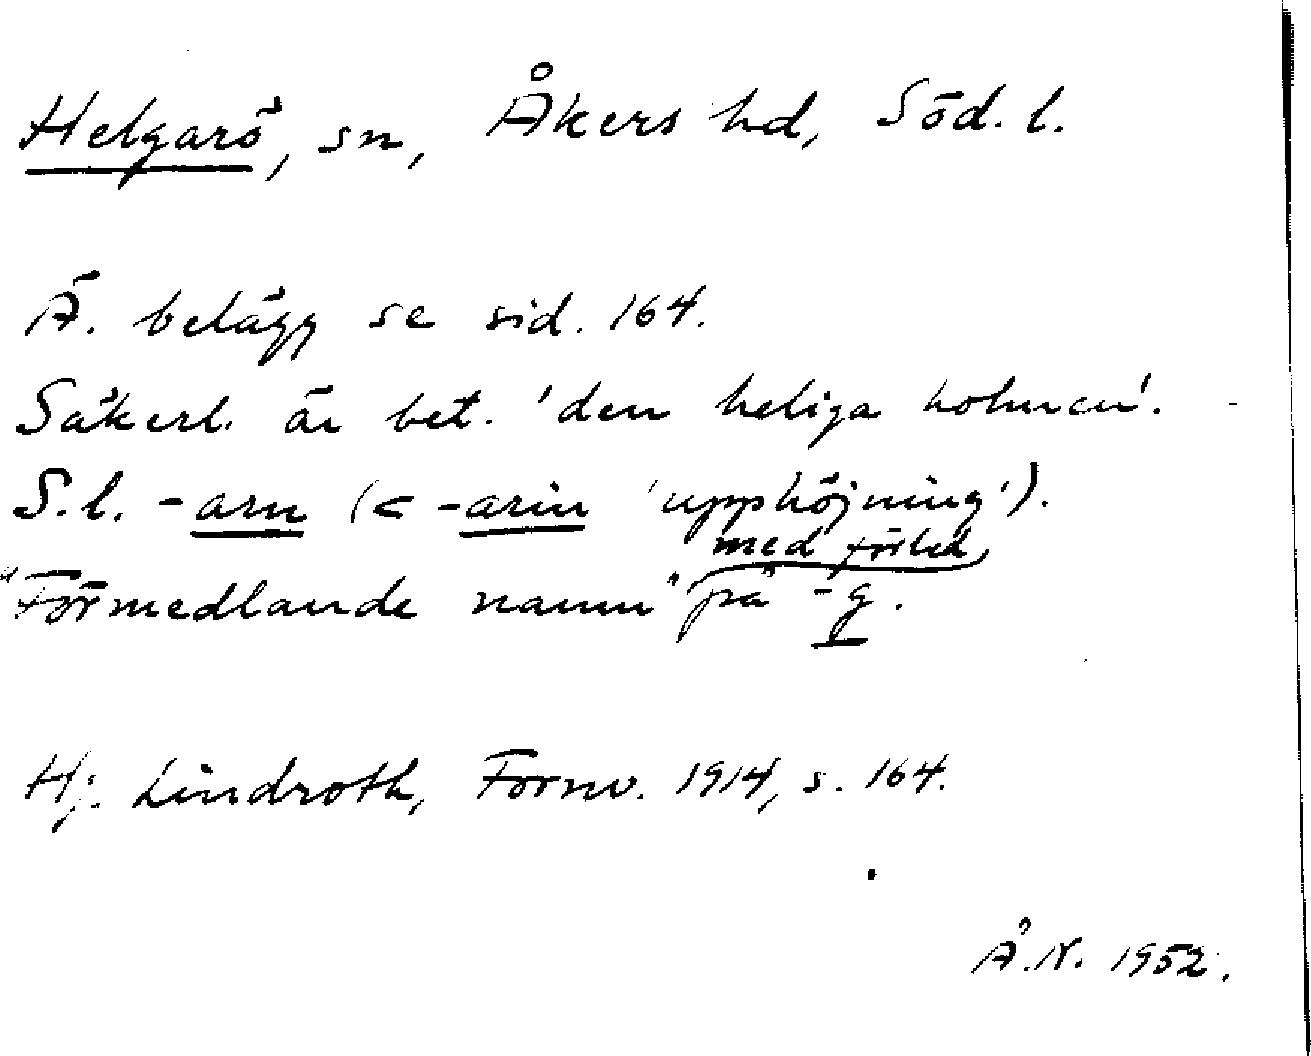 Helgarö, sn, Åkers hd, Söd. l.
Ä. belägg se sid. 164.
Säkerl. är bet. 'den heliga holmen'. -
S.l. -arn (< -arin 'upphöjning').
"Förmedlande namn" med förled på -g.
Hj. Lindroth, Fornv. 1914, s. 164.
Å.N. 1952.